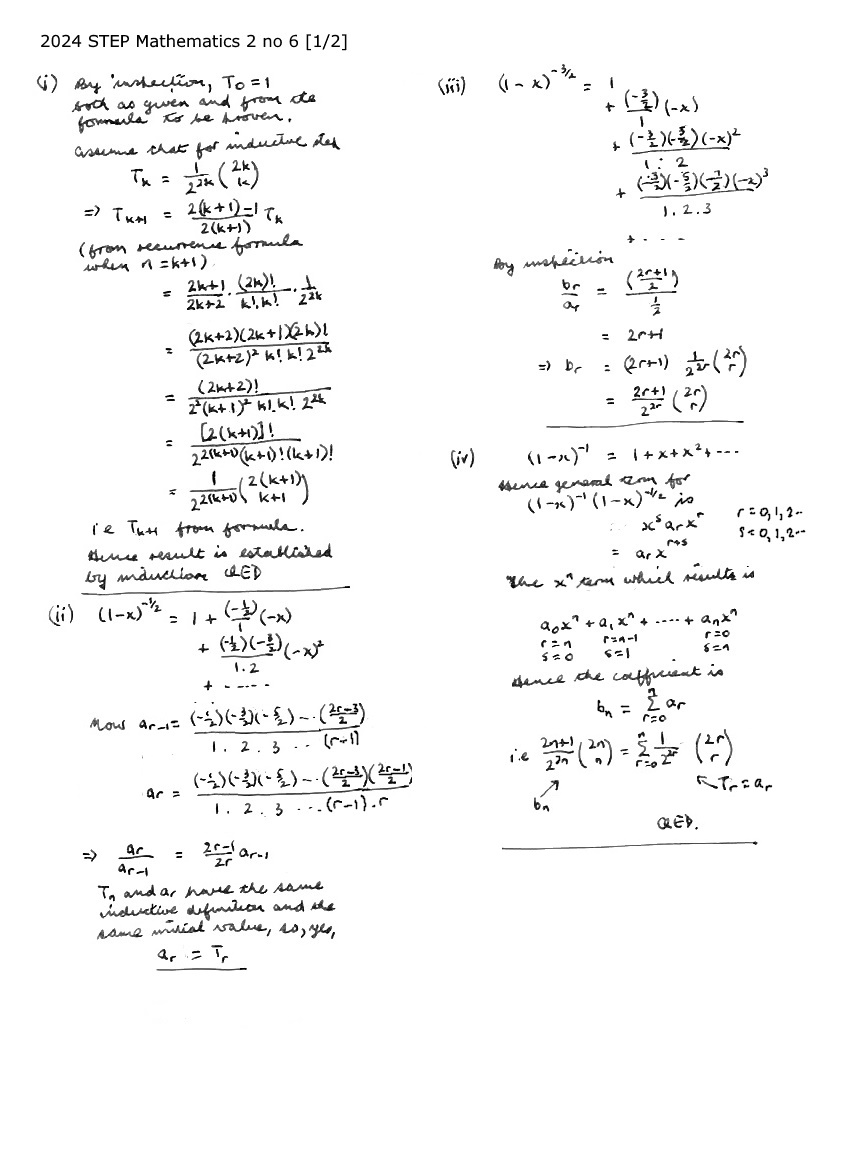 2024 STEP Mathematics 2 no 6 [1/2]
(i) By inspection, T₀ = 1
both as given and from the
formula to be proven.
Assume that for inductive step
T_k = 1/2^{2k} (2k choose k)
=> T_{k+1} = (2(k+1)-1)/(2(k+1)) T_k
(from recurrence formula
when n = k+1)
= (2k+1)/(2k+2) · (2k)!/(k! k!) · 1/2^{2k}
= (2k+2)(2k+1)(2k)! / ((2k+2)² k! k! 2^{2k})
= (2k+2)! / (2²(k+1)² k! k! 2^{2k})
= [2(k+1)]! / (2^{2(k+1)} (k+1)! (k+1)!)
= 1/2^{2(k+1)} (2(k+1) choose k+1)
i.e T_{k+1} from formula.
Hence result is established
by induction QED
(ii) (1-x)^{-1/2} = 1 + (-1/2)/1 (-x)
+ (-1/2)(-3/2)/(1.2) (-x)²
+ - - - - -
Now a_{r-1} = (-1/2)(-3/2)(-5/2) -·· ((2r-3)/2) / (1. 2. 3 ··· (r-1))
a_r = (-1/2)(-3/2)(-5/2) -·· ((2r-3)/2)((2r-1)/2) / (1. 2. 3 ··· (r-1). r)
=> a_r/a_{r-1} = (2r-1)/(2r) a_{r-1}
T_n and a_r have the same
inductive definition and the
same initial value, so, yes,
a_r = T_r
(iii) (1-x)^{-3/2} = 1
+ (-3/2)/1 (-x)
+ (-3/2)(-5/2)(-x)² / (1 . 2)
+ (-3/2)(-5/2)(-7/2)(-x)³ / (1.2.3)
+ - - - -
By inspection
b_r/a_r = ((2r+1)/2) / (1/2)
= 2r+1
=> b_r = (2r+1) 1/2^{2r} (2r choose r)
= (2r+1)/2^{2r} (2r choose r)
(iv) (1-x)^{-1} = 1+x+x²+ ---
Hence general term for
(1-x)^{-1} (1-x)^{-1/2} is
x^s a_r x^r r = 0,1,2--
= a_r x^{r+s} s = 0,1,2--
The xⁿ term which results is
a₀xⁿ + a₁xⁿ + ···· + a_n xⁿ
r=n r=n-1 r=0
s=0 s=1 s=n
Hence the coefficient is
b_n = Σ_{r=0}^{n} a_r
i.e (2n+1)/2^{2n} (2n choose n) = Σ_{r=0}^{n} 1/2^{2r} (2r choose r)
↗ b_n ↖ T_r = a_r
QED.